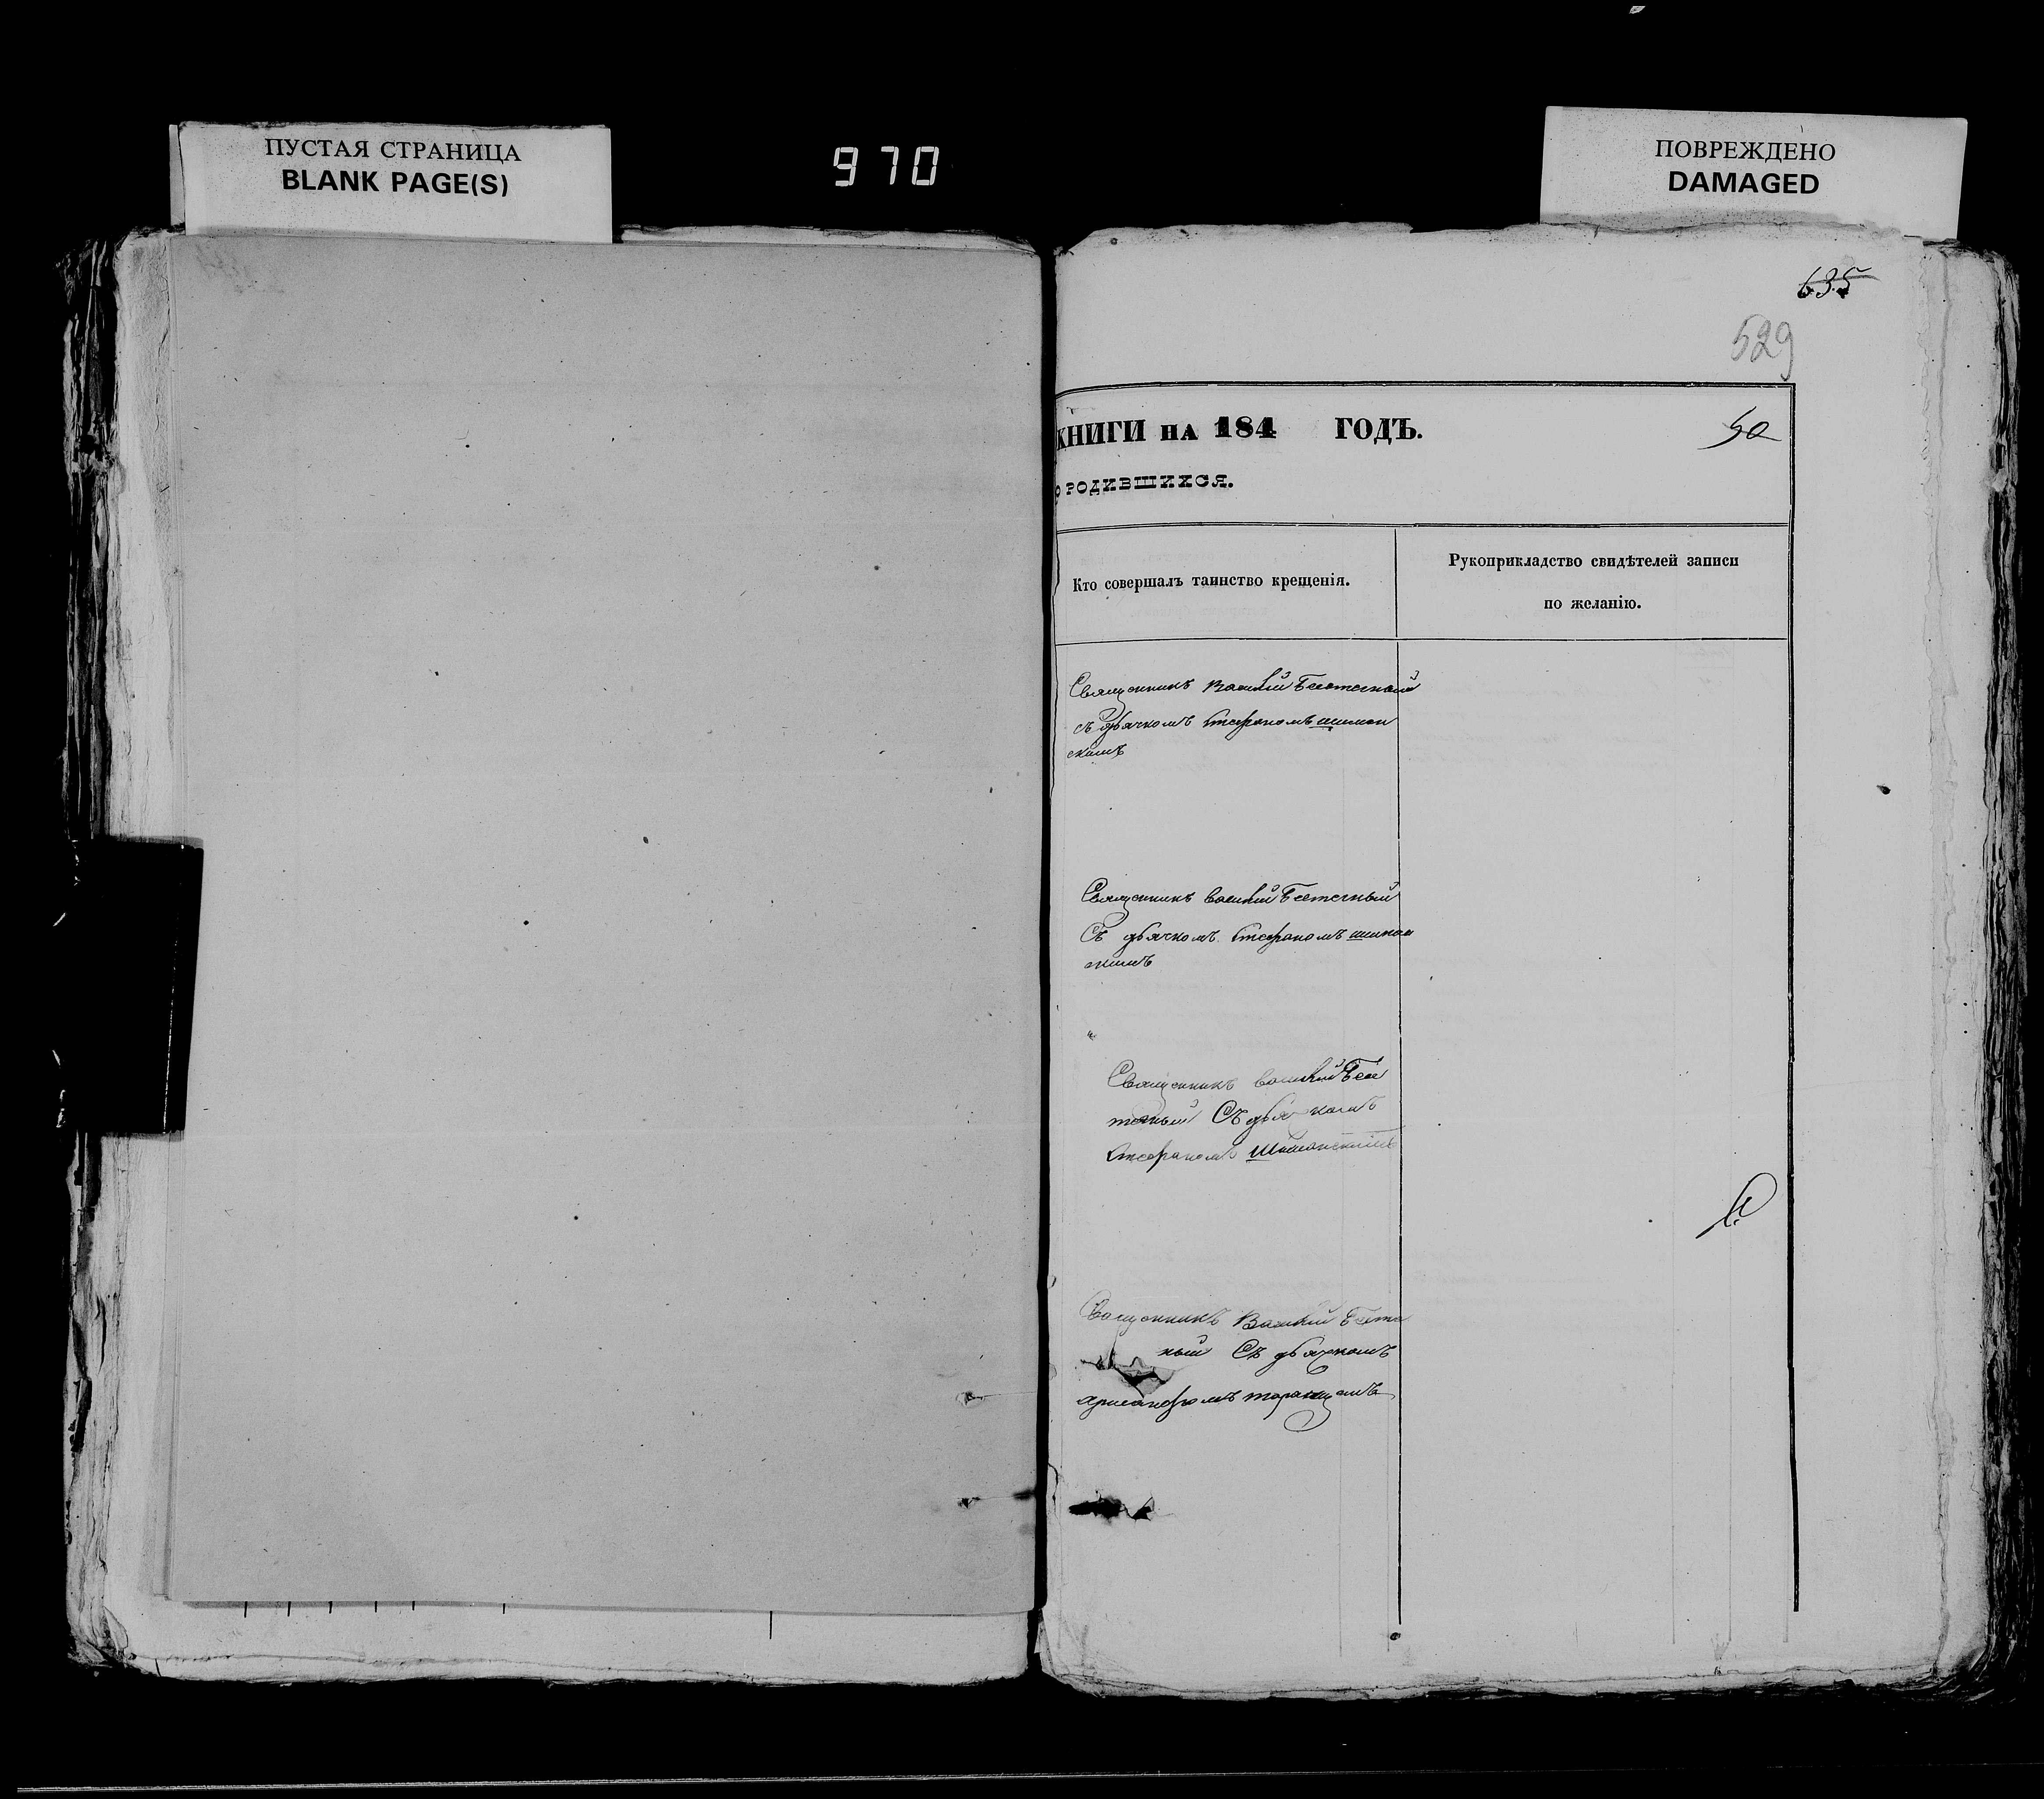 ПУСТАЯ СТРАНИЦА
BLANK PAGE(S)
970
ПОВРЕЖДЕНО
DAMAGED
635
529
КНИГИ НА 184 ГОДЪ.
50
О РОДИВШИХСЯ.
Кто совершалъ таинство крещенія.
Рукоприкладство свидѣтелей записи
по желанію.
Священникъ Василій
съ дьячкомъ Стефаномъ
скимъ
Священникъ Василій
Съ дьячкомъ Стефаномъ
скимъ
Священникъ Василій
Съ дьячкомъ
Стефаномъ Шиманскимъ
Священникъ Василій
ный Съ дьячкомъ